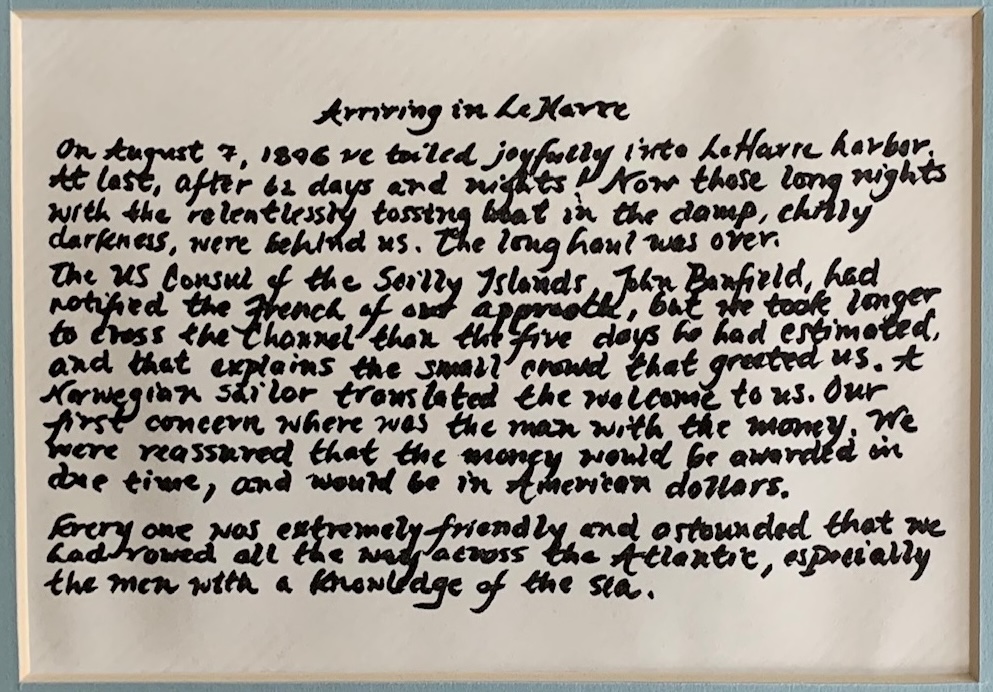 Arriving in LeHavre
On August 7, 1896 we toiled joyfully into LeHavre harbor.
At last, after 62 days and nights! Now those long nights
with the relentlessly tossing boat in the damp, chilly
darkness, were behind us. The long haul was over.
The US Consul of the Scilly Islands, John Banfield, had
notified the French of our approach, but we took longer
to cross the Channel than the five days he had estimated,
and that explains the small crowd that greeted us. A
Norwegian sailor translated the welcome to us. Our
first concern where was the man with the money. We
were reassured that the money would be awarded in
due time, and would be in American dollars.
Every one was extremely friendly and astounded that we
had rowed all the way across the Atlantic, especially
the men with a knowledge of the sea.